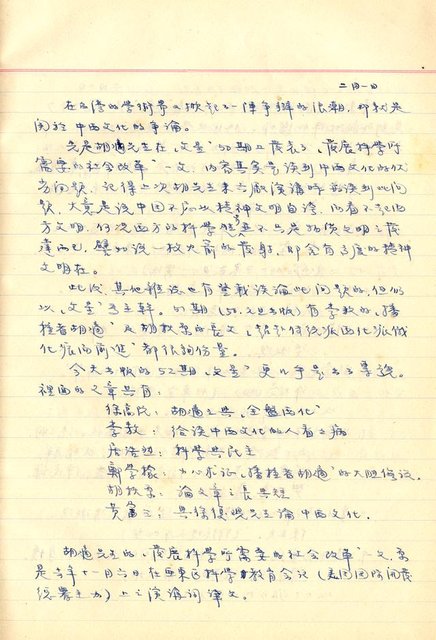 二月一日
在台灣的學術界又掀起了一陣爭辯的浪潮，那就是
關於中西文化的爭論。
先是胡適先生在「文星」50期上發表了「發展科學所
需要的社會改革」一文，內容其實是談到中西文化的
問題，記得上次胡先生來 演講時 談到此問
題，大意是說中國不 以精神文明自誇，而看不起西
方文明，何況西方的科學 不只是物質文明之發
達而已，譬如說一枚火箭的發射，即含有高度的精神
文明在。
此後，其他雜誌也有登載談論此問題的，但仍
以「文星」為主幹。51期(50.元.出版)有李敖的「播
種者胡適」及胡秋原的長文「超越傳統派西化派俄
化派而前進」都很夠份量。
今天出版的52期「文星」更 爭 。
裡面的文章共有：
徐高阮：胡適之與「全盤西化」
李敖：給談中西文化的人看看病
居浩然：科學與民主
鄭學稼：小心求証「播種者胡適」的大膽假設。
胡秋原：論文章之長與短
黃富三：與徐復觀先生論中西文化。
胡適先生的「發展科學所需要的社會改革」一文，
是去年十一月六日在亞東區科學教育會 (美國國際開發
總署主辦)上之演講詞譯文。